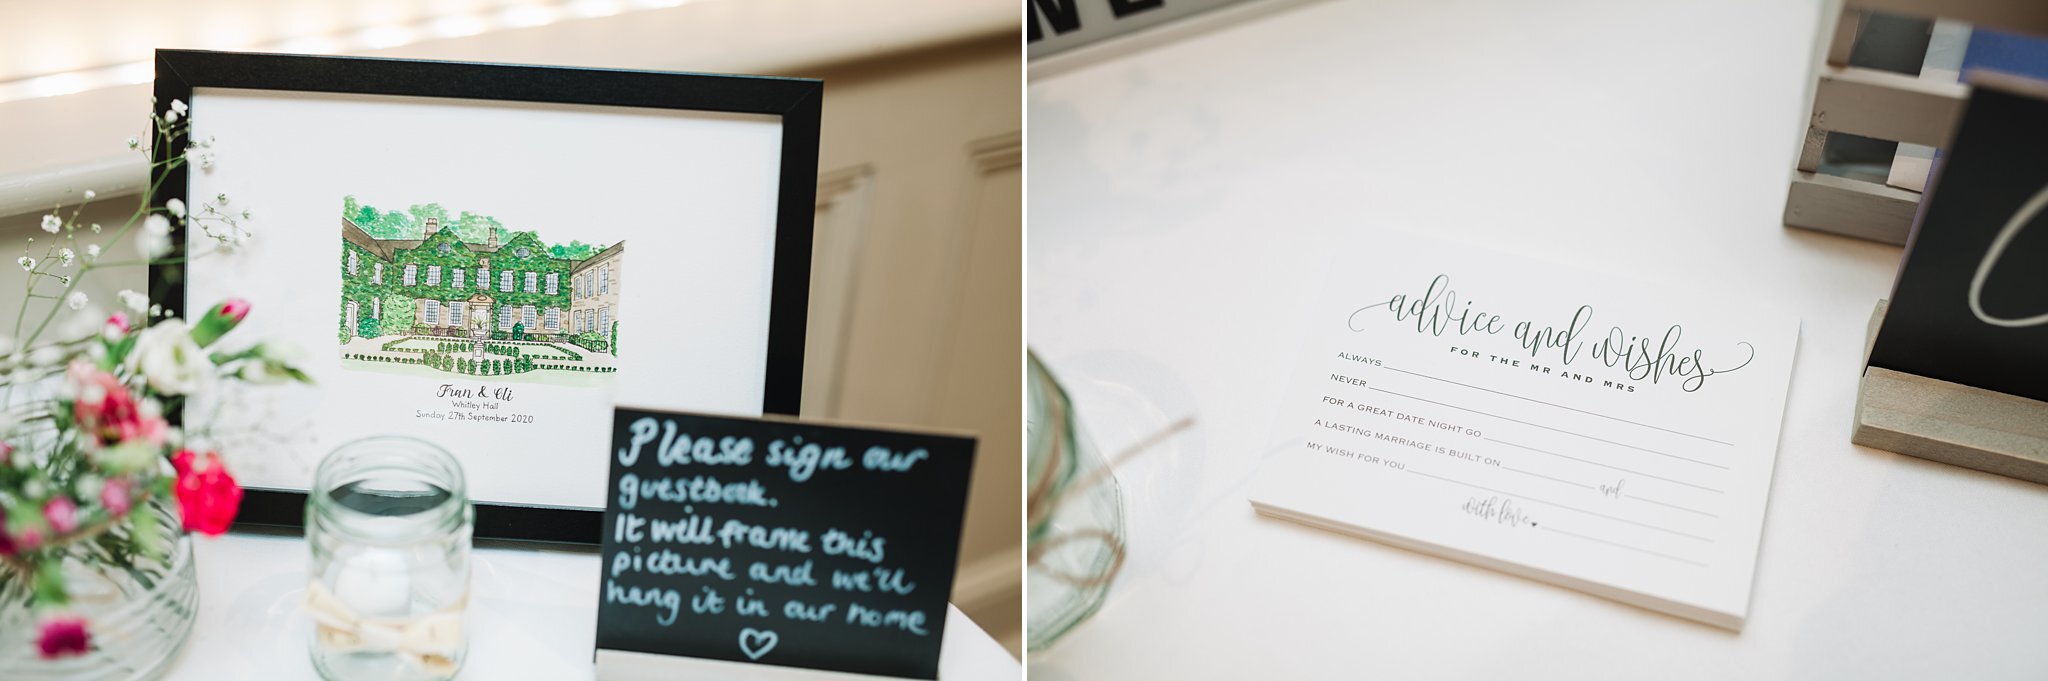 Fran & Oli
Whitley Hall
Sunday 27th September 2020
Please sign our
guestbook.
It will frame this
picture and we'll
hang it in our home
advice and wishes
FOR THE MR AND MRS
ALWAYS
NEVER
FOR A GREAT DATE NIGHT GO
A LASTING MARRIAGE IS BUILT ON
and
MY WISH FOR YOU
with love